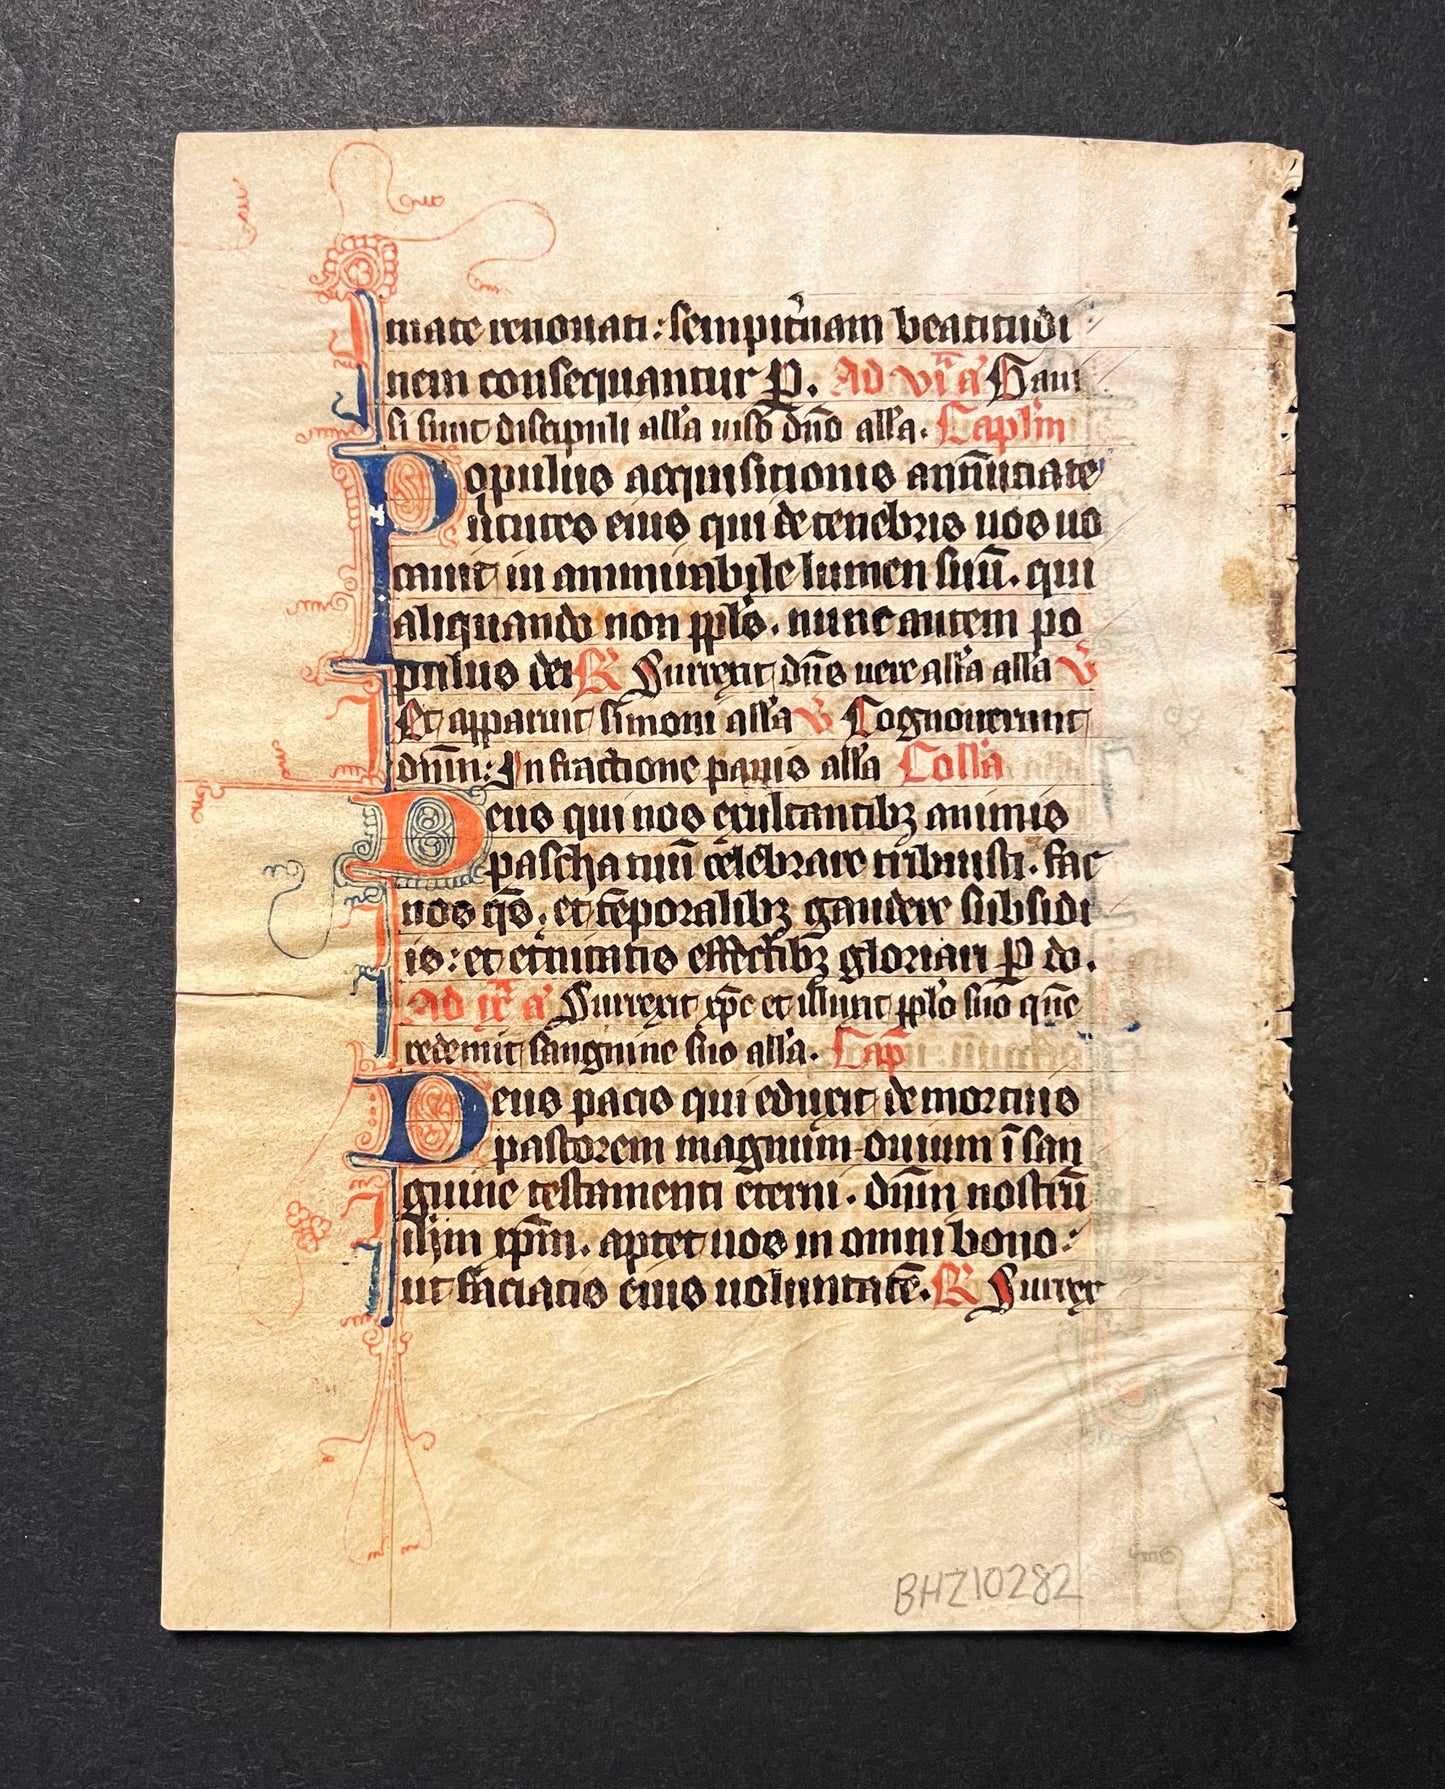 mate renouati : sempit̾nam beatitudi
nem consequantur P. Ad viᵃ a᷑ Gaui
si sunt discipuli all̾a uiso dn̄o all̾a. Capl̾m
Populus acquisitionis annūciate
u̾tutes eius qui de tenebris uos uo
cauit in ammirabile lumen suū. qui
aliquando non ppl̾s. nunc autem po
pulus dei R̸ Surrexit dn̄s uere all̾a all̾a v̾
Et apparuit simoni all̾a v̾ Cognouerunt
dn̄m : In fractione panis all̾a Coll̾a
Deus qui nos exultantibꝫ animis
pascha tuū celebrare tribuisti. fac
nos q̄s. et tēporalibꝫ gaudere subsidi
is : et et̾nitatis effectibꝫ gloriari P do.
Ad ixᵃ a᷑ Surrexit xp̄c et illuxit ppl̾o suo quē
redemit sanguine suo all̾a. Cap̄
Deus pacis qui eduxit de mortuis
pastorem magnum ouium ī san
guine testamenti eterni. dn̄m nostrū
ih̄m xp̄m. aptet uos in omni bono :
ut faciatis eius uoluntatē. R̸ Surrex
BHZ10282